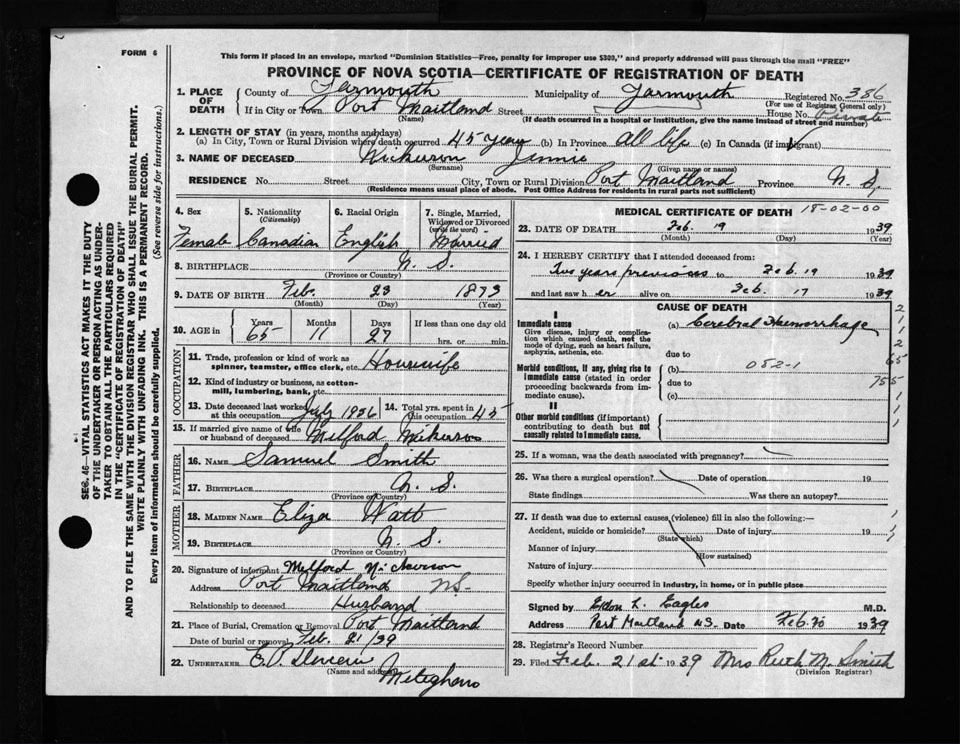 FORM 6
This form if placed in an envelope, marked "Dominion Statistics—Free, penalty for improper use $300," and properly addressed will pass through the mail "FREE"
PROVINCE OF NOVA SCOTIA—CERTIFICATE OF REGISTRATION OF DEATH
1. PLACE OF DEATH County of Yarmouth Municipality of Yarmouth Registered No. 386
(For use of Registrar General only)
If in City or Town Port Maitland Street House No. Private
(Name) (If death occurred in a hospital or institution, give the name instead of street and number)
2. LENGTH OF STAY (in years, months and days)
(a) In City, Town or Rural Division where death occurred 45 years (b) In Province All life (c) In Canada (if immigrant)
3. NAME OF DECEASED Nickerson Jennie
(Surname) (Given name or names)
RESIDENCE No. Street City, Town or Rural Division Port Maitland Province N. S.
(Residence means usual place of abode. Post Office Address for residents in rural parts not sufficient)
4. Sex 5. Nationality (Citizenship) 6. Racial Origin 7. Single, Married, Widowed or Divorced (write the word)
Female Canadian English Married
8. BIRTHPLACE N. S.
(Province or Country)
9. DATE OF BIRTH Feb. 23 1873
(Month) (Day) (Year)
10. AGE in Years Months Days If less than one day old
65 11 27 hrs. or min.
OCCUPATION
11. Trade, profession or kind of work as spinner, teamster, office clerk, etc. Housewife
12. Kind of industry or business, as cotton-mill, lumbering, bank, etc.
13. Date deceased last worked at this occupation July 1936 14. Total yrs. spent in this occupation 45
15. If married give name of wife or husband of deceased Milford Nickerson
FATHER
16. NAME Samuel Smith
17. BIRTHPLACE N. S.
(Province or Country)
MOTHER
18. MAIDEN NAME Eliza Watt
19. BIRTHPLACE N. S.
(Province or Country)
20. Signature of informant Milford Nickerson
Address Port Maitland NS.
Relationship to deceased Husband
21. Place of Burial, Cremation or Removal Port Maitland
Date of burial or removal Feb. 21/39
22. UNDERTAKER
(Name and address)
MEDICAL CERTIFICATE OF DEATH 18-02-60
23. DATE OF DEATH Feb. 19 1939
(Month) (Day) (Year)
24. I HEREBY CERTIFY that I attended deceased from:
Two years previous to Feb. 19 1939
and last saw her alive on Feb. 17 1939
CAUSE OF DEATH
I
Immediate cause
Give disease, injury or complication which caused death, not the mode of dying, such as heart failure, asphyxia, asthenia, etc.
(a) Cerebral Haemorrhage
due to
Morbid conditions, if any, giving rise to immediate cause (stated in order proceeding backwards from immediate cause).
(b) 052-1
due to
(c)
II
Other morbid conditions (if important) contributing to death but not causally related to immediate cause.
25. If a woman, was the death associated with pregnancy?
26. Was there a surgical operation? Date of operation 19
State findings Was there an autopsy?
27. If death was due to external causes (violence) fill in also the following:—
Accident, suicide or homicide? Date of injury 19
(State which)
Manner of injury
(How sustained)
Nature of injury
Specify whether injury occurred in industry, in home, or in public place
Signed by Eldon L. Eagles M.D.
Address Port Maitland N.S. Date Feb. 20 1939
28. Registrar's Record Number
29. Filed Feb. 21st 1939 Mrs Ruth M. Smith
(Division Registrar)
SEC. 46—VITAL STATISTICS ACT MAKES IT THE DUTY OF THE UNDERTAKER OR PERSON ACTING AS UNDERTAKER TO OBTAIN ALL THE PARTICULARS REQUIRED IN THE "CERTIFICATE OF REGISTRATION OF DEATH" AND TO FILE THE SAME WITH THE DIVISION REGISTRAR WHO SHALL ISSUE THE BURIAL PERMIT.
WRITE PLAINLY WITH UNFADING INK. THIS IS A PERMANENT RECORD.
Every item of information should be carefully supplied. (See reverse side for instructions.)